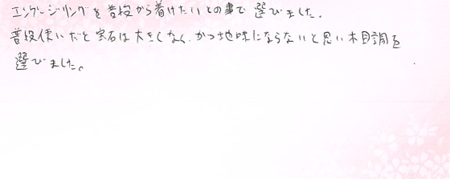 エンゲージリングを普段から着けたいとの事で選びました。
普段使いだと宝石は大きくなく、かつ地味にならないと思い木目調を
選びました。